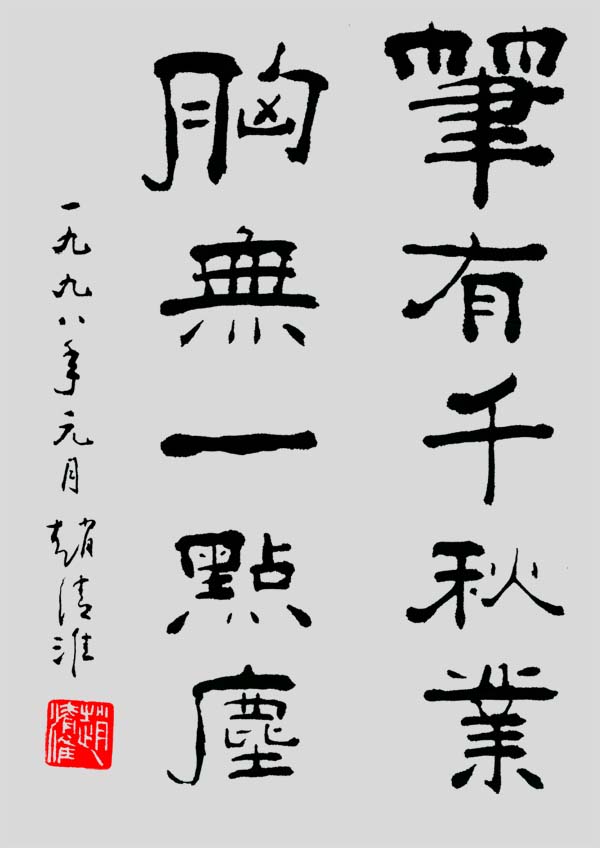 筆有千秋業
胸無一點塵
一九九八年元月 趙清淮
趙清淮